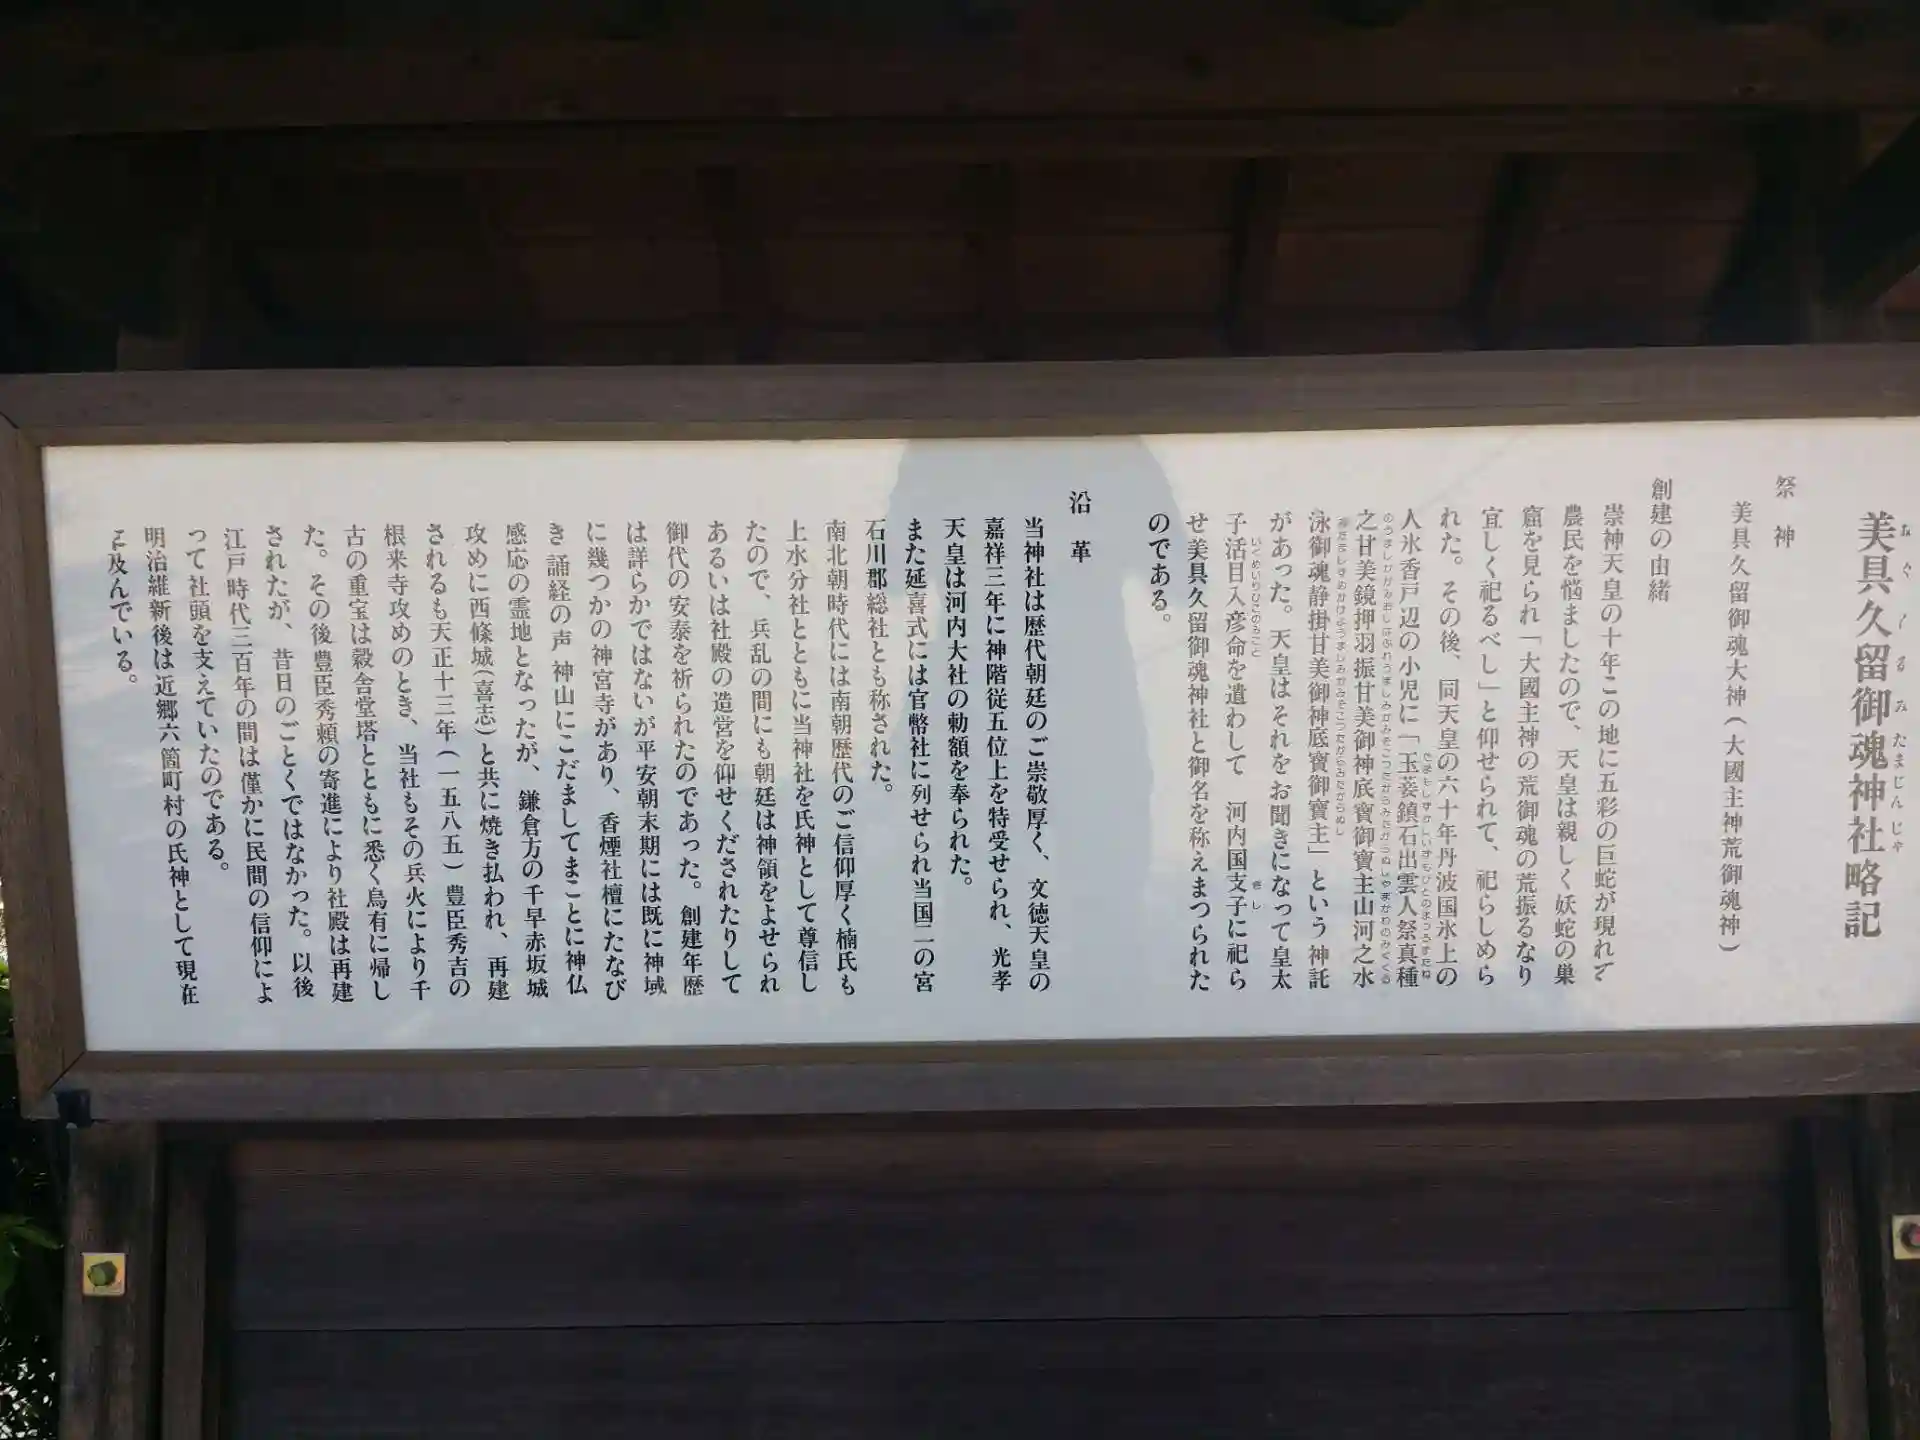 美具久留御魂神社略記
祭神
美具久留御魂大神(大國主神荒御魂神)
創建の由緒
崇神天皇の十年この地に五彩の巨蛇が現れて
農民を悩ましたので、天皇は親しく妖蛇の巣
窟を見られ「大國主神の荒御魂の荒振るなり
宜しく祀るべし」と仰せられて、祀らしめら
れた。その後、同天皇の六十年丹波国氷上の
人氷香戸辺の小児に「玉菨鎮石出雲人祭真種
之甘美鏡押羽振甘美御神底寶御寶主山河之水
泳御魂静掛甘美御神底寶御寶主」という神託
があった。天皇はそれをお聞きになって皇太
子活目入彦命を遣わして 河内国支子に祀ら
せ美具久留御魂神社と御名を称えまつられた
のである。
沿革
当神社は歴代朝廷のご崇敬厚く、文徳天皇の
嘉祥三年に神階従五位上を特受せられ、光孝
天皇は河内大社の勅額を奉られた。
また延喜式には官幣社に列せられ当国二の宮
石川郡総社とも称された。
南北朝時代には南朝歴代のご信仰厚く楠氏も
上水分社とともに当神社を氏神として尊信し
たので、兵乱の間にも朝廷は神領をよせられ
あるいは社殿の造営を仰せくだされたりして
御代の安泰を祈られたのであった。創建年歴
は詳らかではないが平安朝末期には既に神域
に幾つかの神宮寺があり、香煙社檀にたなび
き 誦経の声 神山にこだましてまことに神仏
感応の霊地となったが、鎌倉方の千早赤坂城
攻めに西條城(喜志)と共に焼き払われ、再建
されるも天正十三年(一五八五)豊臣秀吉の
根来寺攻めのとき、当社もその兵火により千
古の重宝は穀舎堂塔とともに悉く烏有に帰し
た。その後豊臣秀頼の寄進により社殿は再建
されたが、昔日のごとくではなかった。以後
江戸時代三百年の間は僅かに民間の信仰によ
って社頭を支えていたのである。
明治維新後は近郷六箇町村の氏神として現在
に及んでいる。